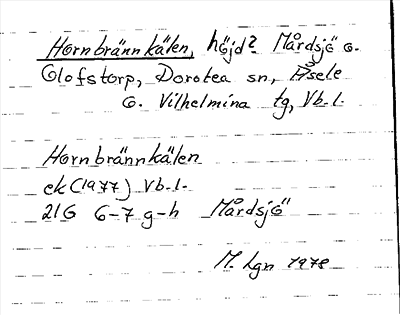 Hornbrännkälen, höjd? Mårdsjö o.
Olofstorp, Dorotea sn., Åsele
o. Vilhelmina tg, Vb.l.
Hornbrännkälen
ek (1977) Vb.l.
21G 6-7 g-h Mårdsjö
M. Lgn 1978